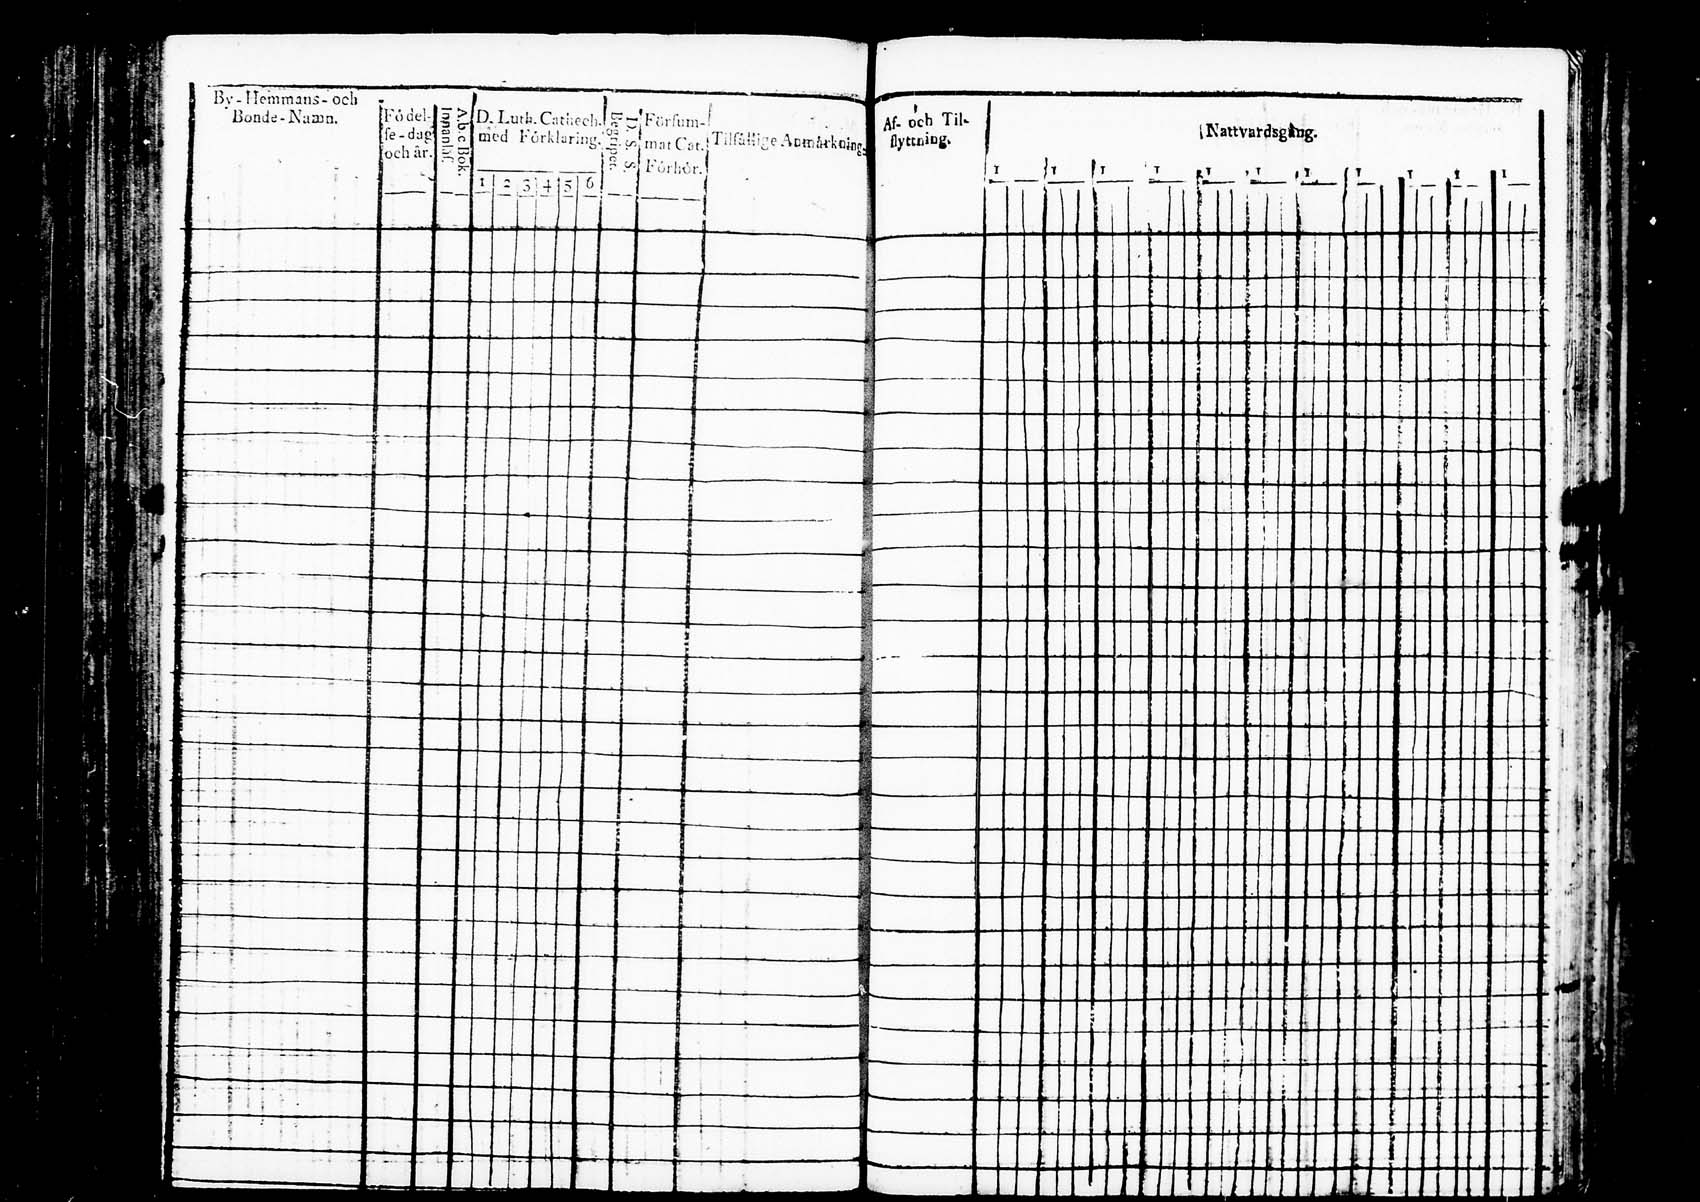 By-Hemmans- och
Bonde-Namn.
Födel-
se-dag
och år.
A.b.c Bok.
Innanläs.
D. Luth. Cathech.
med Förklaring.
1 2 3 4 5 6
D. S. S.
Begriper.
Försum-
mat Cat.
Förhör.
Tilfällige Anmärkning.
Af- och Til-
flyttning.
Nattvardsgång.
1 1 1 1 1 1 1 1 1 1 1